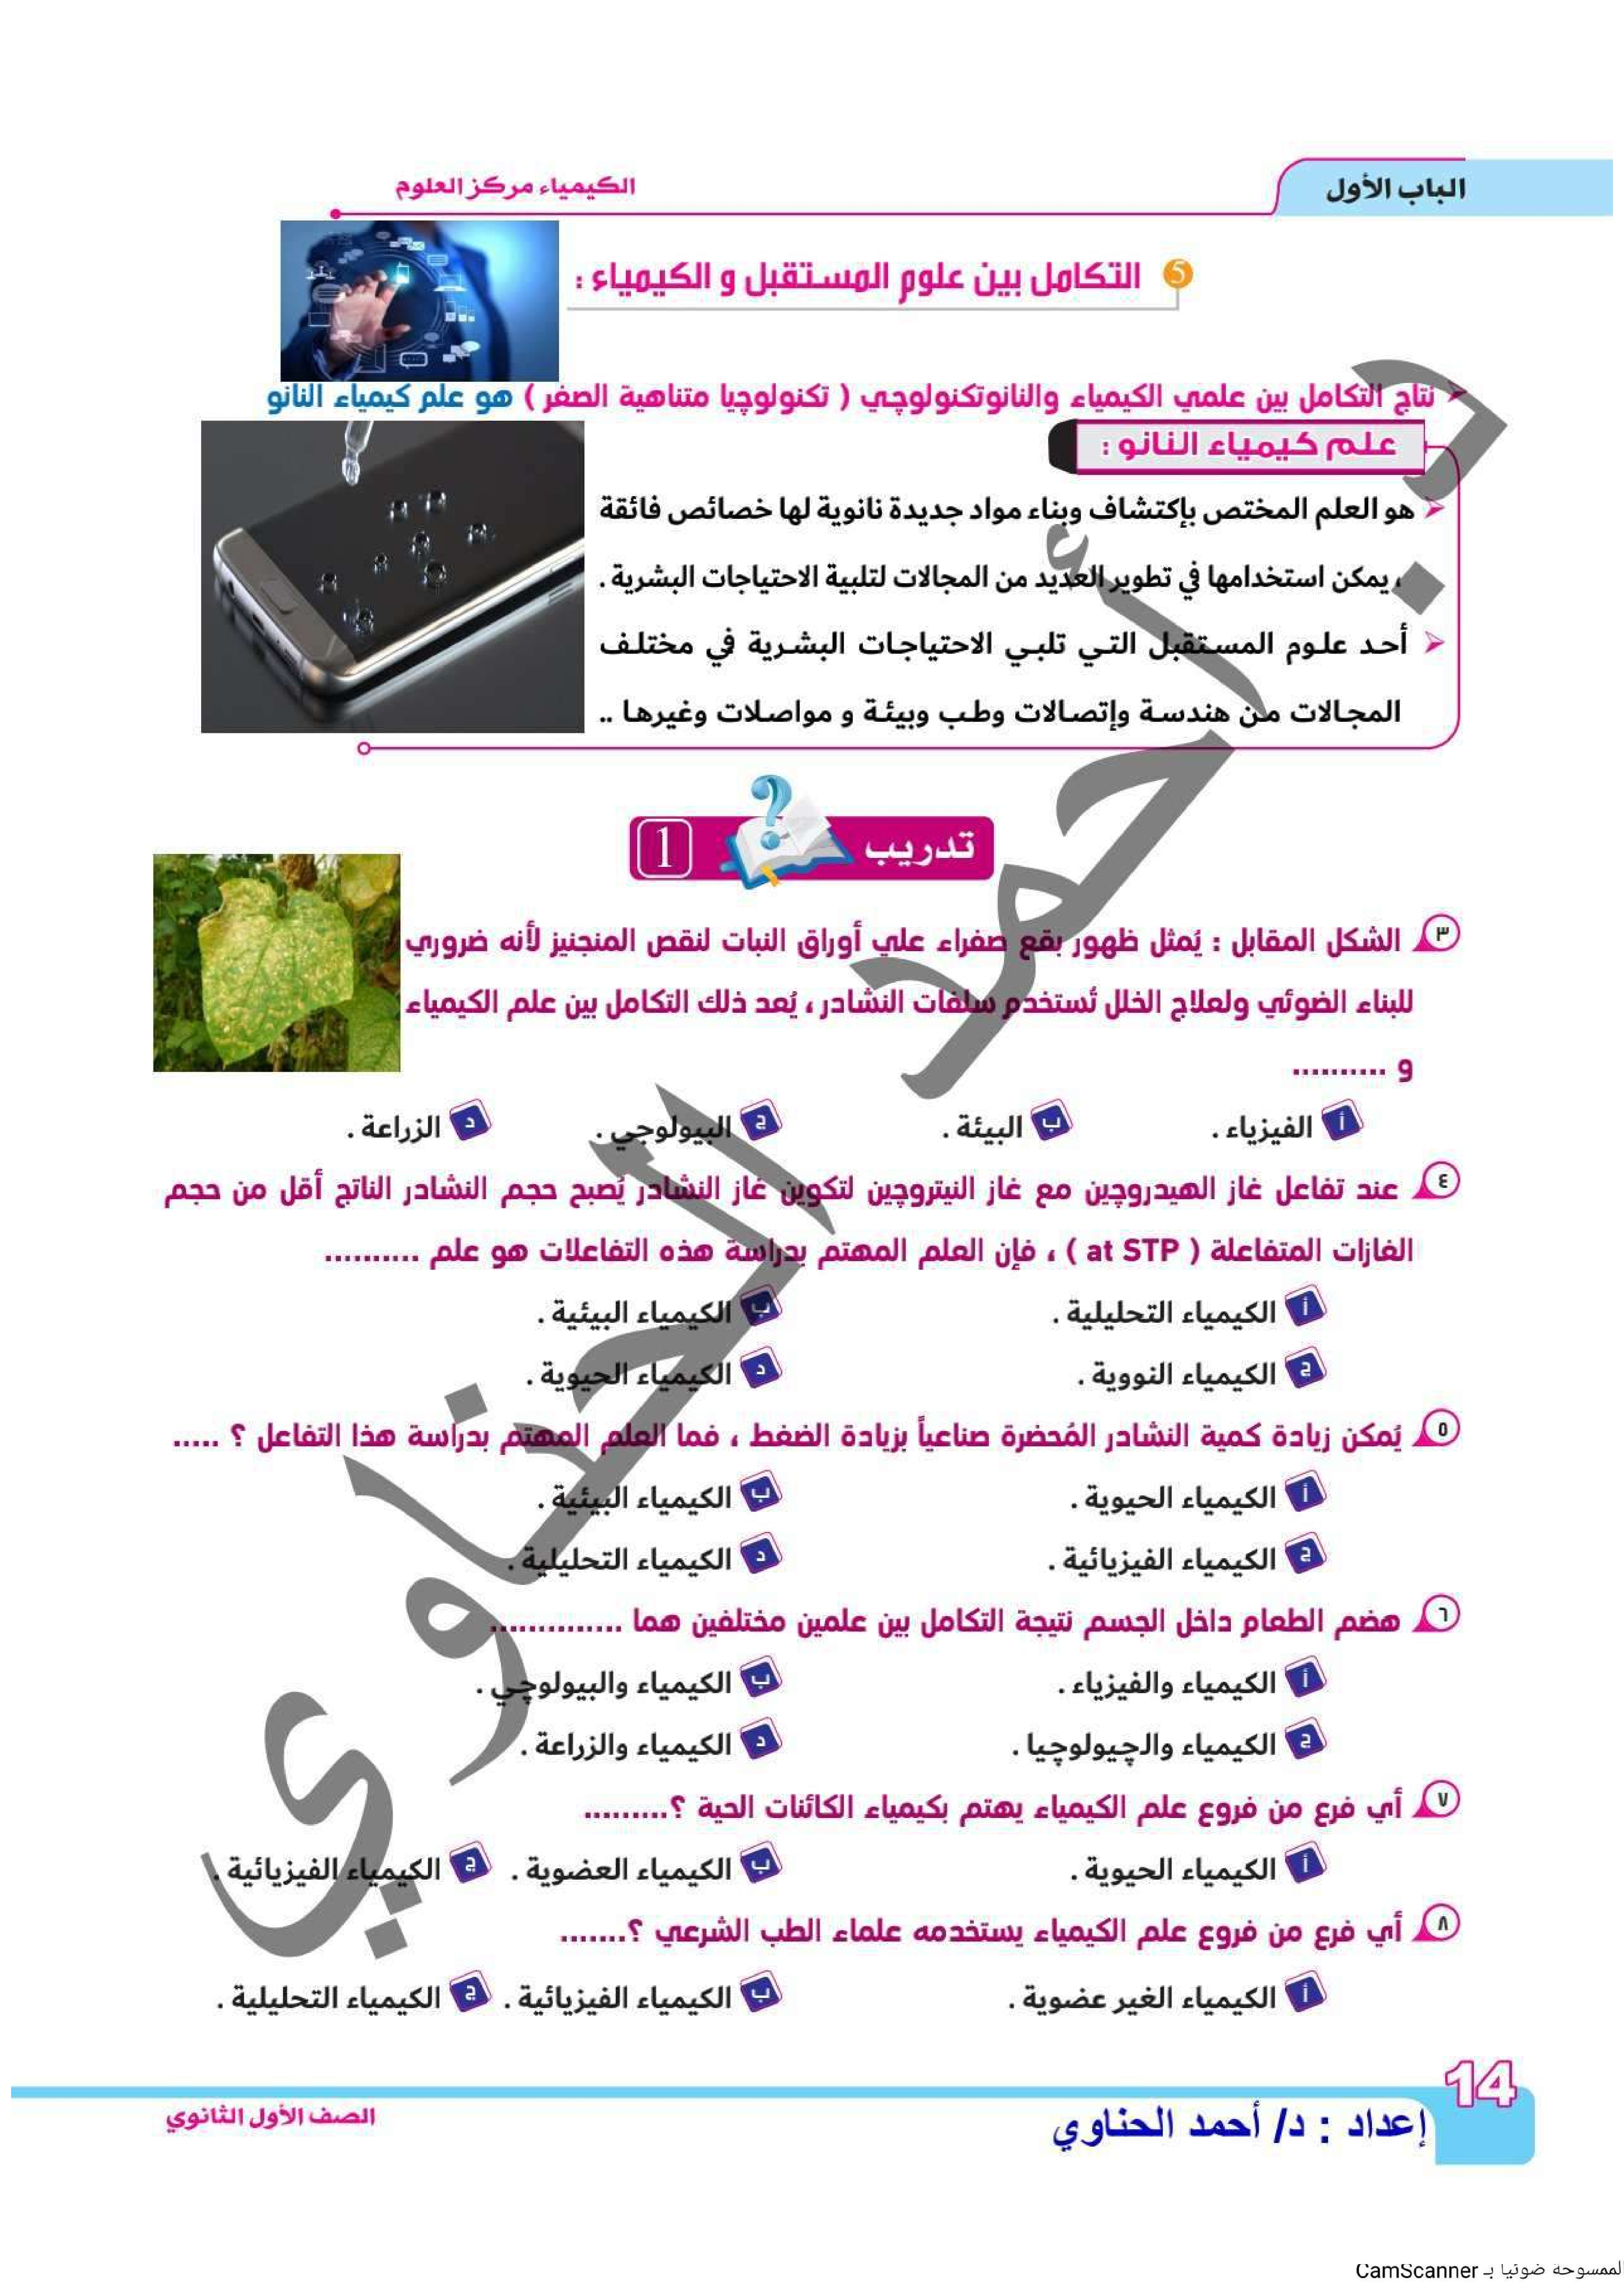 الباب الأول
الكيمياء مركز العلوم
5 التكامل بين علوم المستقبل و الكيمياء :
نتاج التكامل بين علمي الكيمياء والنانوتكنولوچي ( تكنولوچيا متناهية الصفر ) هو علم كيمياء النانو
علم كيمياء النانو :
هو العلم المختص بإكتشاف وبناء مواد جديدة نانوية لها خصائص فائقة
، يمكن استخدامها في تطوير العديد من المجالات لتلبية الاحتياجات البشرية .
أحد علوم المستقبل التي تلبي الاحتياجات البشرية في مختلف
المجالات من هندسة وإتصالات وطب وبيئة و مواصلات وغيرها ..
تدريب 1
٣ الشكل المقابل : يُمثل ظهور بقع صفراء علي أوراق النبات لنقص المنجنيز لأنه ضروري
للبناء الضوئي ولعلاج الخلل تُستخدم سلفات النشادر ، يُعد ذلك التكامل بين علم الكيمياء
و ..........
أ الفيزياء .
ب البيئة .
ج البيولوجي .
د الزراعة .
٤ عند تفاعل غاز الهيدروچين مع غاز النيتروچين لتكوين غاز النشادر يُصبح حجم النشادر الناتج أقل من حجم
الغازات المتفاعلة ( at STP ) ، فإن العلم المهتم بدراسة هذه التفاعلات هو علم ..........
أ الكيمياء التحليلية .
ب الكيمياء البيئية .
ج الكيمياء النووية .
د الكيمياء الحيوية .
٥ يُمكن زيادة كمية النشادر المُحضرة صناعياً بزيادة الضغط ، فما العلم المهتم بدراسة هذا التفاعل ؟ .....
أ الكيمياء الحيوية .
ب الكيمياء البيئية .
ج الكيمياء الفيزيائية .
د الكيمياء التحليلية .
٦ هضم الطعام داخل الجسم نتيجة التكامل بين علمين مختلفين هما ..............
أ الكيمياء والفيزياء .
ب الكيمياء والبيولوچي .
ج الكيمياء والچيولوچيا .
د الكيمياء والزراعة .
٧ أي فرع من فروع علم الكيمياء يهتم بكيمياء الكائنات الحية ؟.........
أ الكيمياء الحيوية .
ب الكيمياء العضوية .
ج الكيمياء الفيزيائية .
٨ أي فرع من فروع علم الكيمياء يستخدمه علماء الطب الشرعي ؟.......
أ الكيمياء الغير عضوية .
ب الكيمياء الفيزيائية .
ج الكيمياء التحليلية .
د. أحمد الحناوي
14
إعداد : د/ أحمد الحناوي
الصف الأول الثانوي
لممسوحة ضوئيا بـ CamScanner